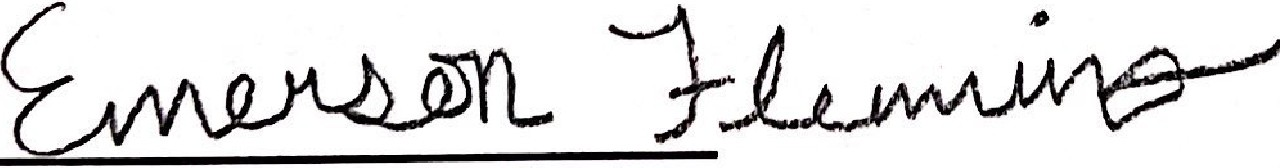 Emerson Fleming